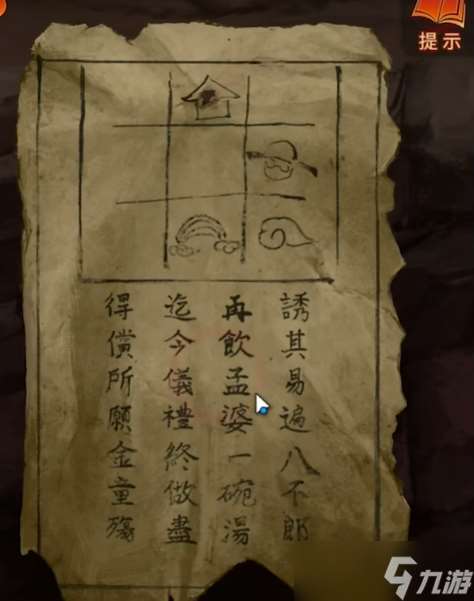 提示
誘其易遍八不郎
再飲孟婆一碗湯
迄今儀禮終做盡
得償所願金童殤
九游